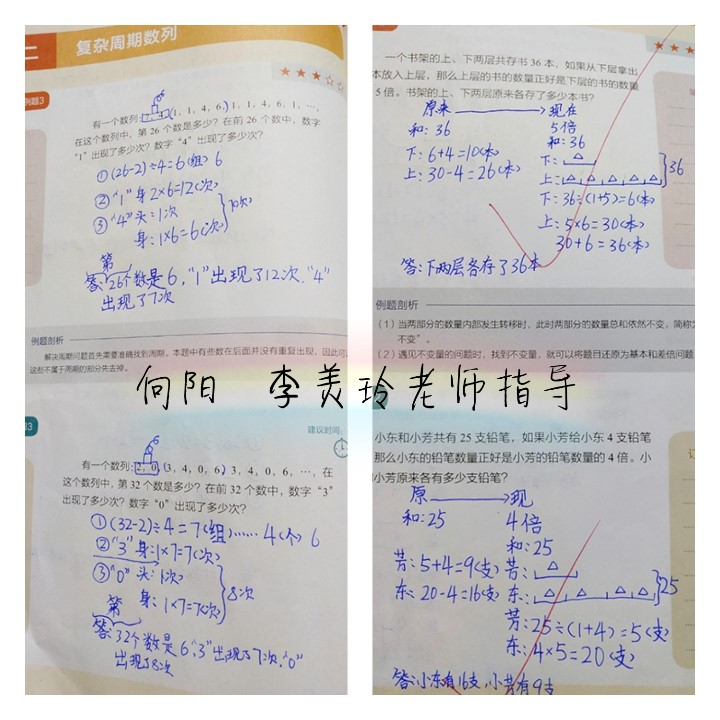 二
复杂周期数列
例题3
有一个数列:2,4,(1,1,4,6,)1,1,4,6,1,…,
在这个数列中,第26个数是多少?在前26个数中,数字
“1”出现了多少次?数字“4”出现了多少次?
①(26-2)÷4=6(组) 6
②“1”身2×6=12(次)
③“4”头:1次
身:1×6=6(次)
7次
第
答:26个数是6,“1”出现了12次,“4”
出现了7次
例题剖析
解决周期问题首先需要准确找到周期。本题中有些数在后面并没有重复出现,因此可
这些不属于周期的部分先去掉。
3
建议时间:
有一个数列:2,0,(3,4,0,6,)3,4,0,6,…,在
这个数列中,第32个数是多少?在前32个数中,数字“3”
出现了多少次?数字“0”出现了多少次?
①(32-2)÷4=7(组)……4(个) 6
②“3”身:1×7=7(次)
③“0”头:1次
身:1×7=7(次)
8次
第
答:32个数是6,“3”出现了7次,“0”
出现了8次
一个书架的上、下两层共存书36本,如果从下层拿出
本放入上层,那么上层的书的数量正好是下层的书的数量
5倍。书架的上、下两层原来各存了多少本书?
原来 现在
和:36 5倍
和:36
下:6+4=10(本) 下:
上:30-4=26(本) 上:
36
下:36÷(1+5)=6(本)
上:5×6=30(本)
30+6=36(本)
答:下两层各存了36本
例题剖析
(1)当两部分的数量内部发生转移时,此时两部分的数量总和依然不变,简称为
不变”。
(2)遇见不变量的问题时,找到不变量,就可以将题目还原为基本和差倍问题
小东和小芳共有25支铅笔,如果小芳给小东4支铅笔
那么小东的铅笔数量正好是小芳的铅笔数量的4倍。小
小芳原来各有多少支铅笔?
原 现
和:25 4倍
和:25
芳:5+4=9(支) 芳:
东:20-4=16(支) 东:
25
芳:25÷(1+4)=5(支)
东:4×5=20(支)
答:小东有16支,小芳有9支
向阳 李美玲老师指导